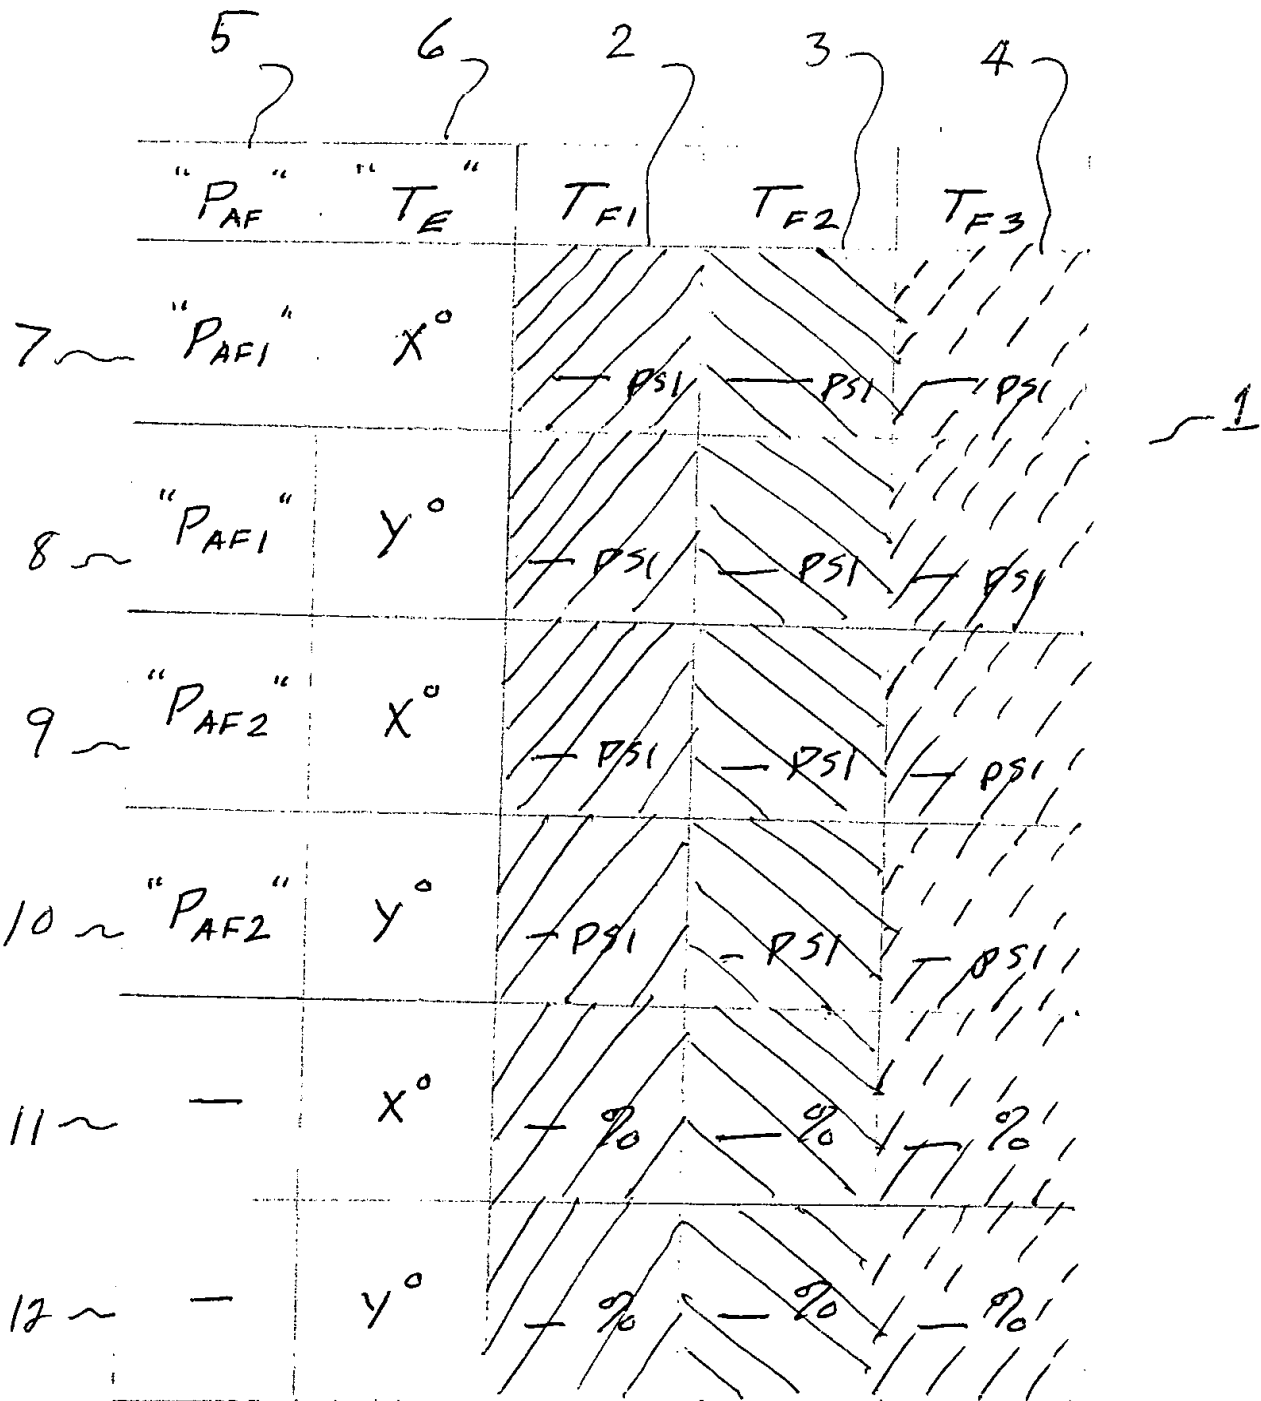 5 6 2 3 4
"P_AF" "T_E" T_F1 T_F2 T_F3
7 "P_AF1" X° — PSI — PSI — PSI
1
8 "P_AF1" Y° — PSI — PSI — PSI
9 "P_AF2" X° — PSI — PSI — PSI
10 "P_AF2" Y° — PSI — PSI — PSI
11 — X° — % — % — %
12 — Y° — % — % — %